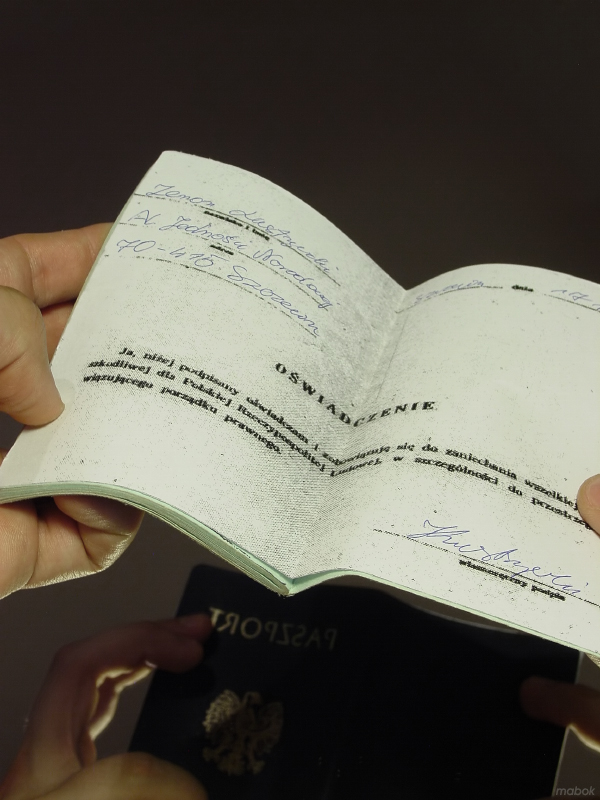 Zenon
nazwisko i imię
Al. Jedności Narodowej
adres
70-415 Szczecin
Szczecin dnia 17
OŚWIADCZENIE
Ja, niżej podpisany oświadczam i zobowiązuję się do zaniechania wszelkiej
szkodliwej dla Polskiej Rzeczypospolitej Ludowej, w szczególności do przestrze
wiązującego porządku prawnego.
własnoręczny podpis
PASZPORT
mabok